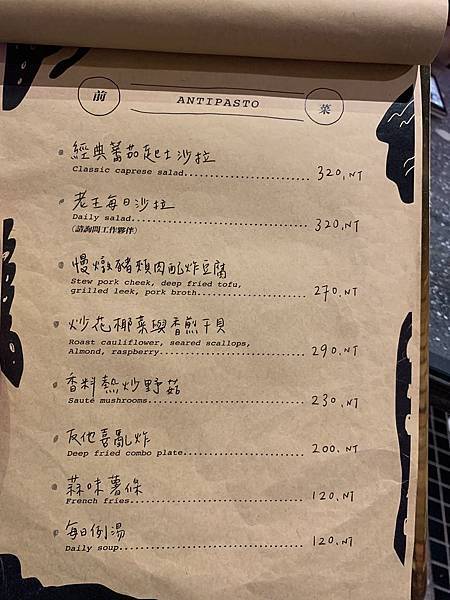 前 ANTIPASTO 菜
經典蕃茄起士沙拉
Classic caprese salad.................... 320.NT
老王每日沙拉
Daily salad.............................. 320.NT
(請詢問工作夥伴)
慢燉豬頰肉配炸豆腐
Stew pork cheek, deep fried tofu,
grilled leek, pork broth................. 270.NT
炒花椰菜與香煎干貝
Roast cauliflower, seared scallops,
Almond, raspberry........................ 290.NT
香料熱炒野菇
Sauté mushrooms.......................... 230.NT
反他喜亂炸
Deep fried combo plate................... 200.NT
蒜味薯條
French fries............................. 120.NT
每日例湯
Daily soup............................... 120.NT